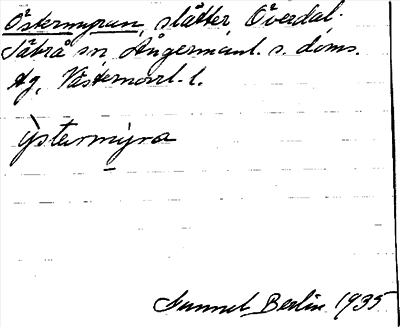 Östermyran, slåtter, Överdal.
Säbrå sn, Ångermanl. s. doms.
Ag, Västernorrl. l.
ÿstermÿra
Sunnet Berlin 1935